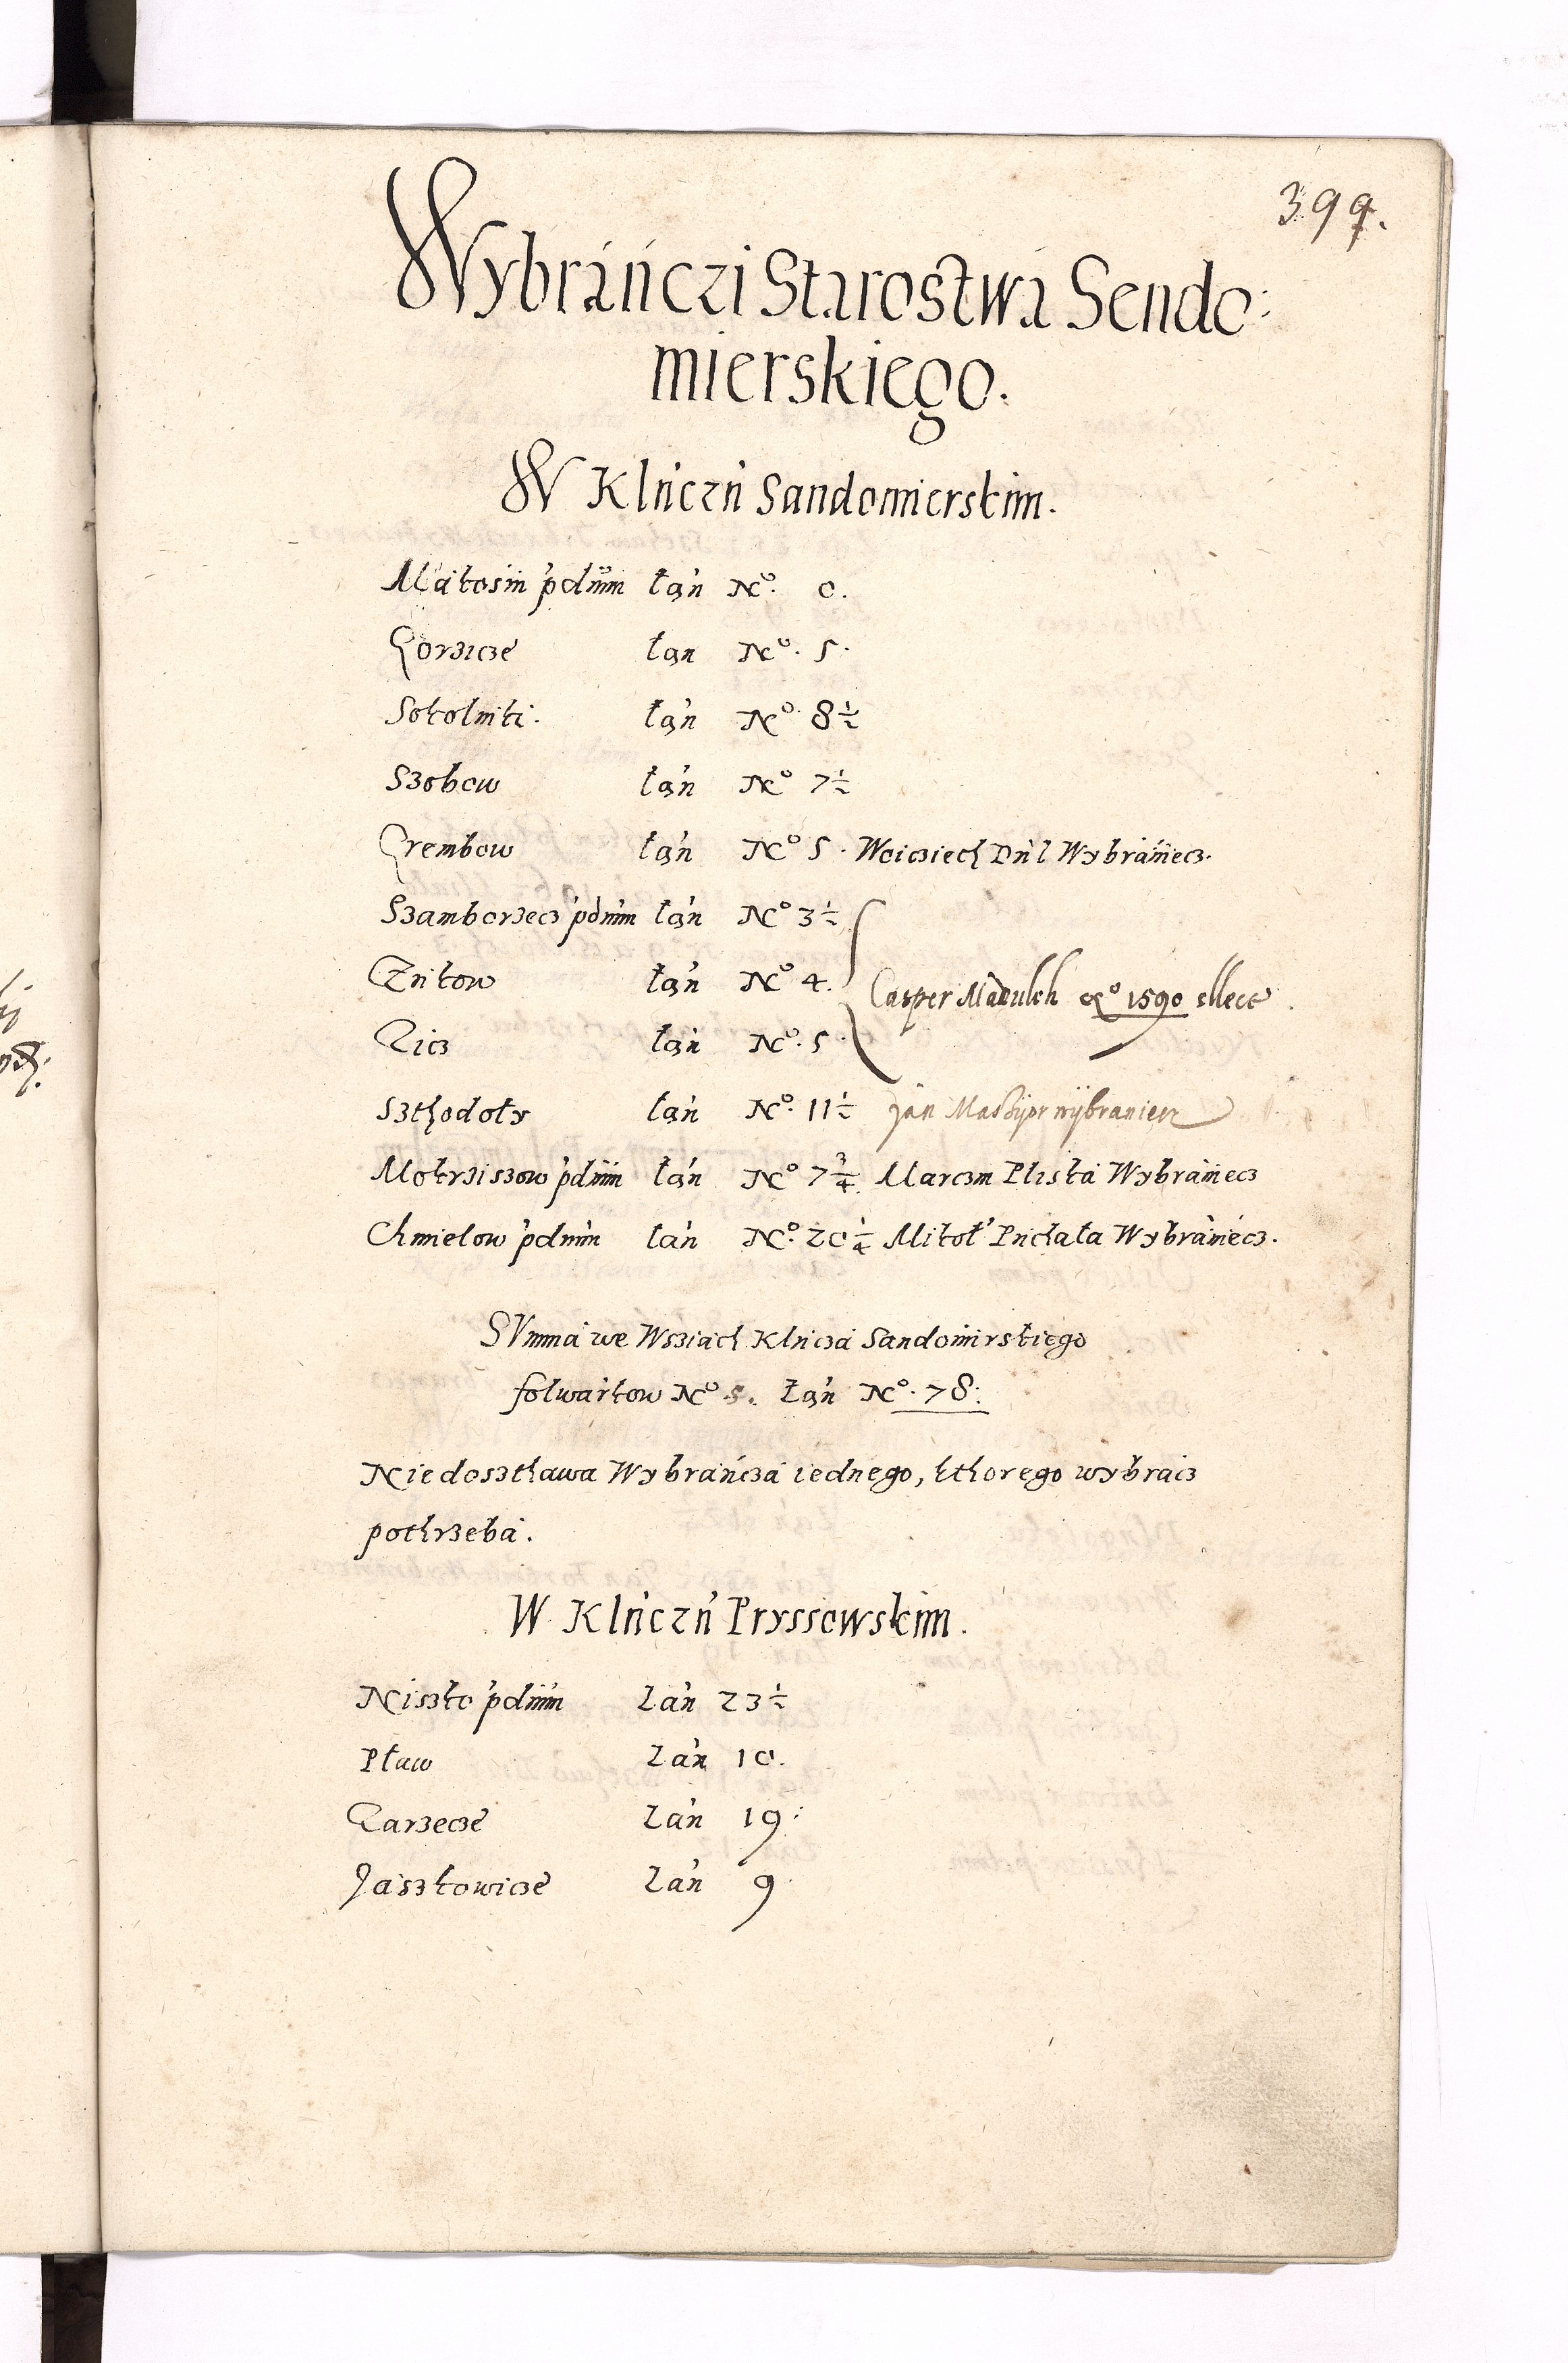 399.
Wybránczi Starostwá Sendo:
mierskiego.
W Kluczu Sandomierskim.
Mąkosin pdium łan No. 0.
Gorzicze łan No. 5.
Sokolniki. łan No. 8½
Szobow łan No 7½
Grembow łan No 5. Woiciech Dul Wybraniecz.
Szamborzecz pdium łan No 3½
Żukow łan No 4.
Casper Madulch ao 1590 ellect.
Zicz łan No. 5.
Szthodoły łan No. 11½ Jan wybraniecz
Mokrziszow pdium łan No 7¾ Marczin Pliskà Wybraniecz
Chmielow pdium łan No. 20¼ Mikoł Puchała Wybraniecz.
SVmmá we Wsziach Kluczá Sandomirskiego
folwarkow No 5. Łan No. 78.
Niedoszthawa Wybráńczá iednego, kthorego wybracz
pothrzebá.
W Kluczu Pryssowskim.
Niszko pdium Łan 23½
Pław Łan 10.
Zarzecze Łan 19.
Jaszkowicze Łan 9.